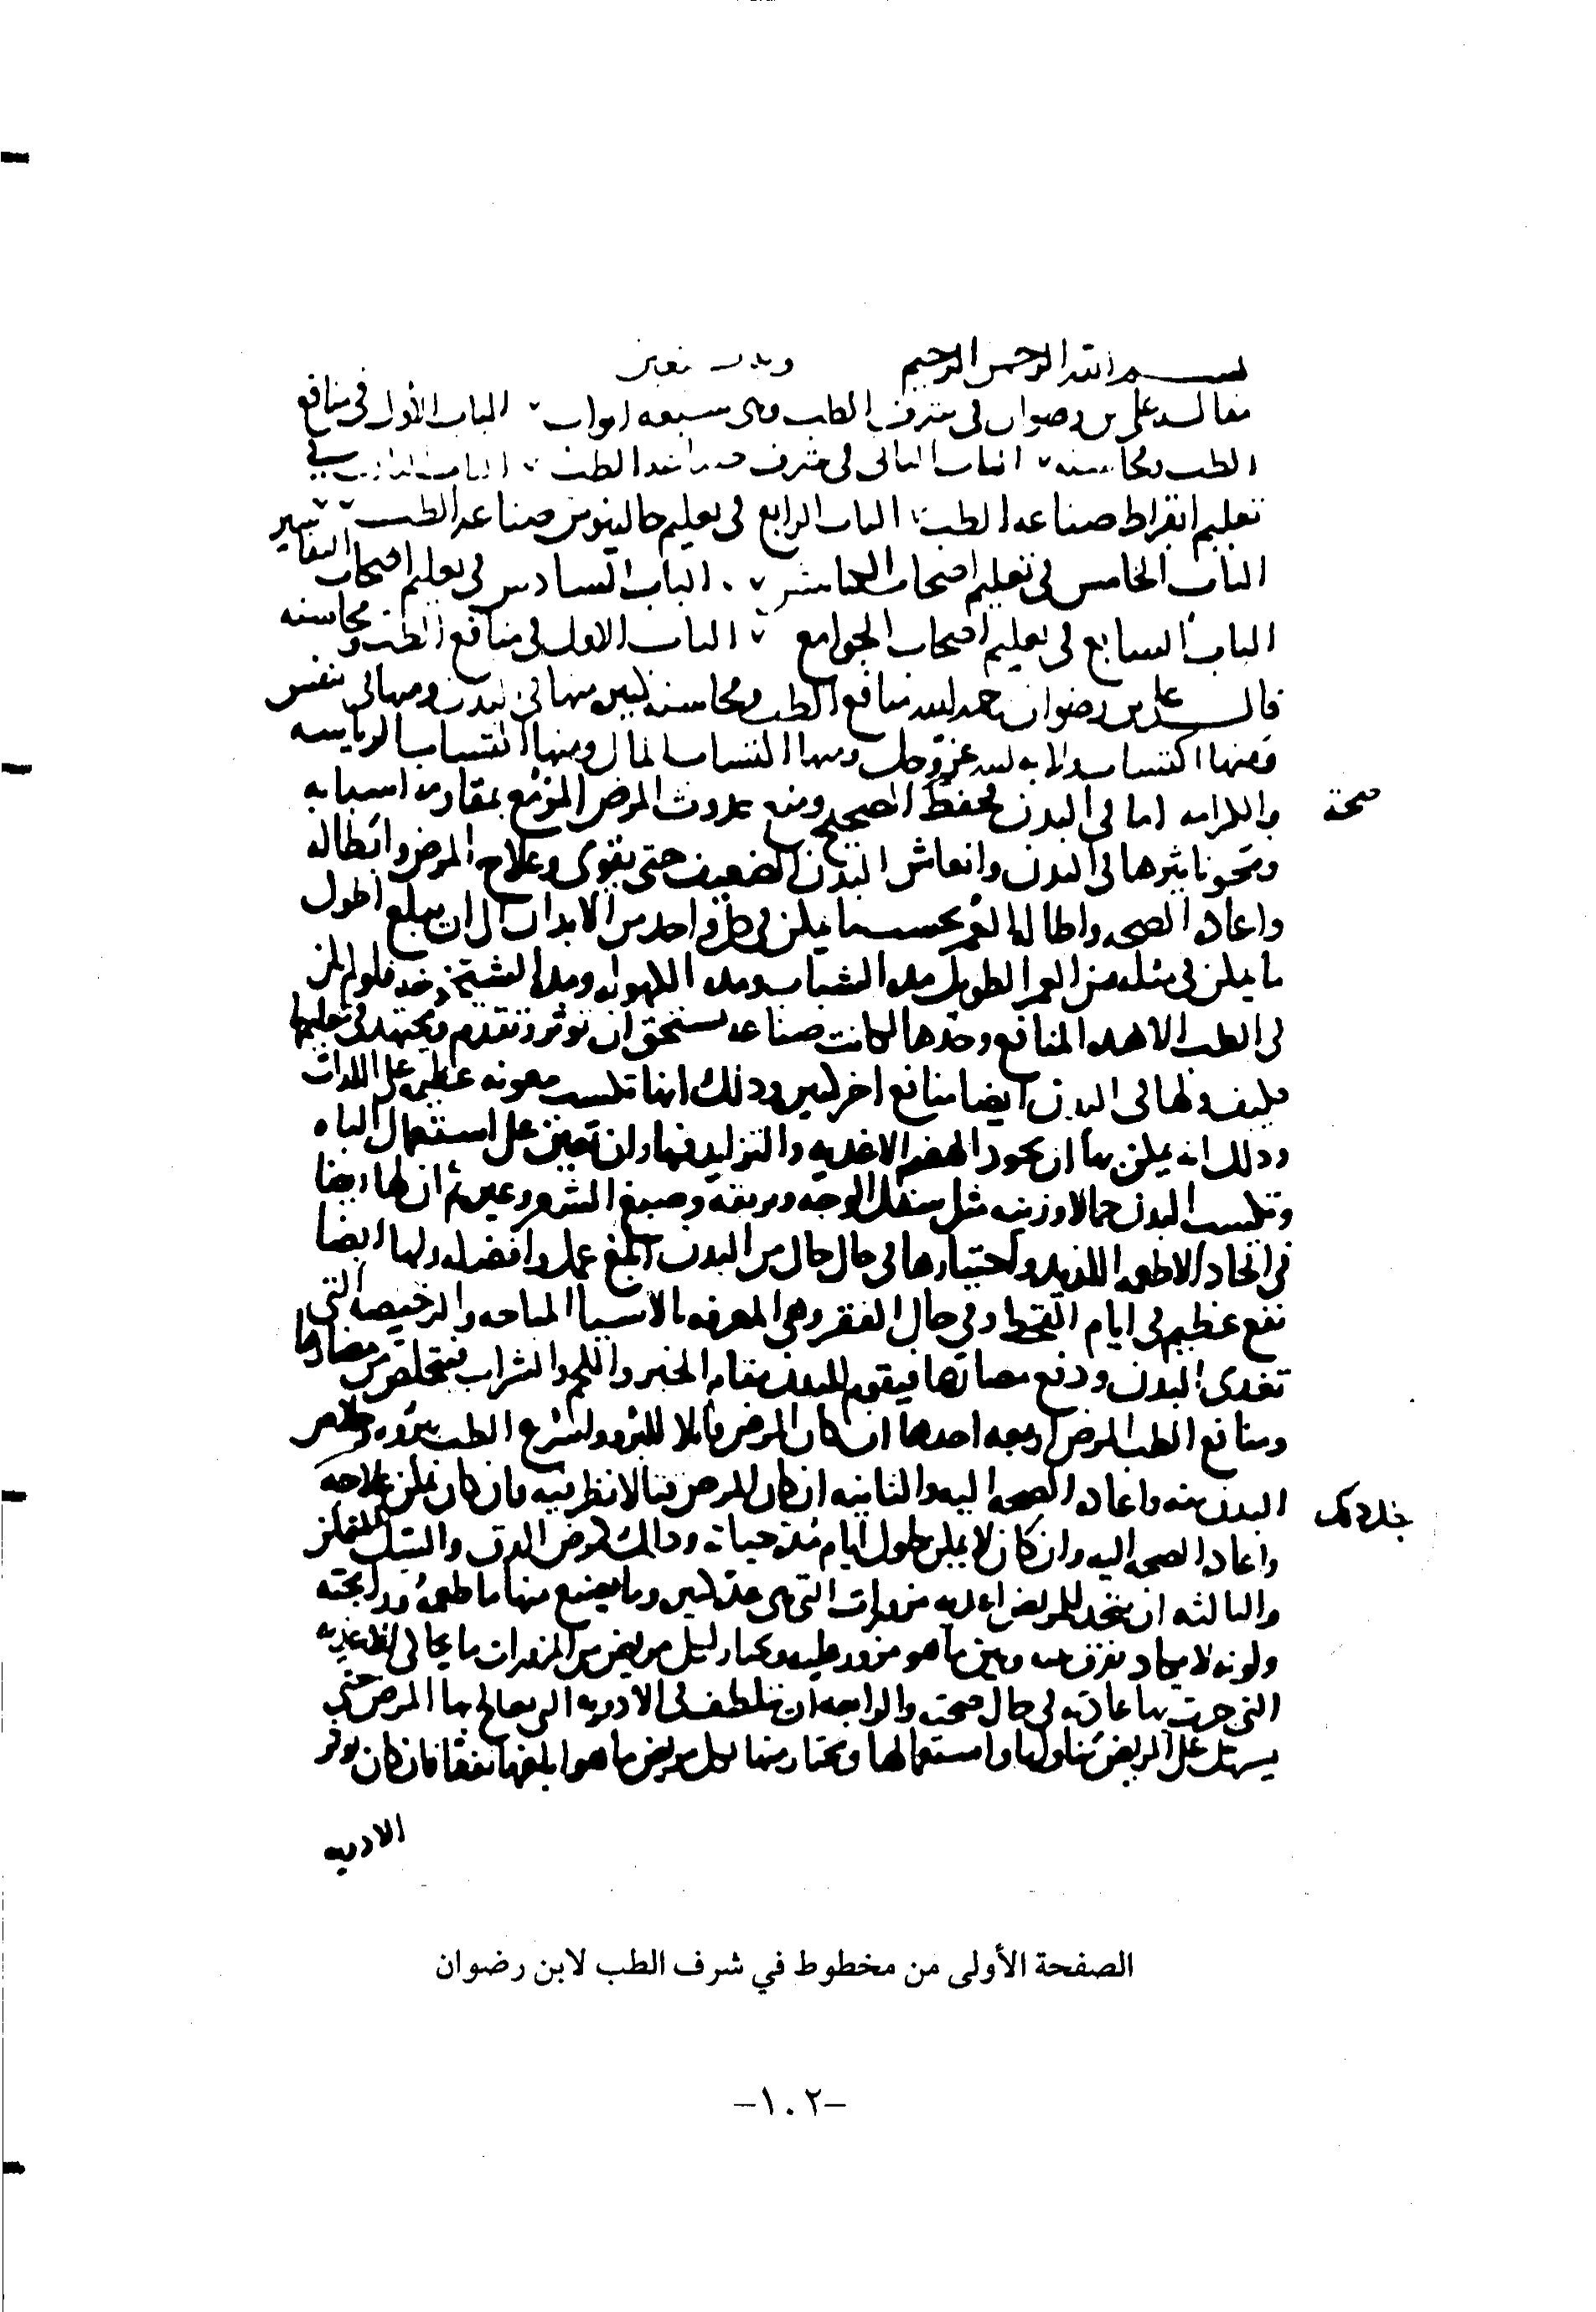 بسم الله الرحمن الرحيم
مقالة على بن رضوان فى شرف الطب وهى سبعه ابواب الباب الأول فى منافع
الطب ومحاسنه الباب الثانى فى شرف صناعه الطب الباب الثالث فى
تعليم ابقراط صناعه الطب الباب الرابع فى تعليم جالينوس صناعه الطب
الباب الخامس فى تعليم اصحاب الباب السادس فى تعليم اصحاب التفاسير
الباب السابع فى تعليم اصحاب الجوامع الباب الاول فى منافع الطب ومحاسنه
قال على بن رضوان منافع الطب ومحاسنه كثيره منها فى البدن ومنها فى النفس
ومنها اكتساب عز وجل ومنها اكتساب المال ومنها اكتساب الرياسه
والكرامه اما فى البدن فحفظ الصحيح ومنع حدوث المرض المزمع بمقاومة اسبابه
صحة
ومحو تاثيرها فى البدن وانعاش البدن الضعيف حتى يقوى وعلاج المرض وابطاله
واعاده الصحه واطاله العمر بحسب ما يمكن فى كل واحد من الابدان الى ان يبلغ اطول
ما يمكن فى مثله من العمر الطويل مده الشباب ومده الكهوله ومده الشيخوخه فلو لم يكن
فى الطب الا هذه المنافع وحدها لكانت صناعه تستحق ان توثر وتقدم ويجتهد فى تعليمها
فكيف ولها فى البدن ايضا منافع اخر كثيره وذلك انها تكسب معونه عظيمه على اللذات
وذلك انه يمكن بها ان يجود الهضم الاغديه والتزايد فيها وان تعين على استعمال الباه
وتكسب البدن جمالا وزينه مثل صقل الوجه وبريقه وصبغ الشعر وغيره ثم ان لها ايضا
فى اتخاد الاطعمه اللذيده واختيارها فى حال حال من البدن ابلغ عمل وافضله ولها ايضا
نفع عظيم فى ايام القحط وفى حال الفقر وهى المعرفه بالاشيا المباحه والرخيصه التى
تغدى البدن ودفع مضارها فيقوم للبدن مقام الخبز واللحم والشراب فيتخلص من مضارها
ومنافع الطب للمرضى اربعه احدها ان كان المرض قابلا للبرو اسرع الطب ببروه وخلاص
البدن منه واعاده الصحه اليه والثانيه ان كان المرض قتالا نظر فيه فان كان يمكن علاجه
واعاد الصحه اليه وان كان لا يمكن طول ايام مده حياته وذلك كمرض الدق والسل
والثالثه ان يتخد للمريض اغديه مزورات التى هى عده كثيره وما يصنع منها ما طعمه ورايحته
ولونه لا يكاد تفرق بينه وبين ما هو مزور عليه ويختار لكل مريض من المزورات ما يحاكى الاغديه
التى جرت بها عادته فى حال صحته والرابعه ان تلطف فى الادويه التى يعالج بها المرض حتى
يسهل على المريض تناولها واستعمالها ويختار منها لكل مريض ما هو ابلغها نفعا فان كان يوثر
الادويه
الصفحة الأولى من مخطوط في شرف الطب لابن رضوان
-١٠٢-